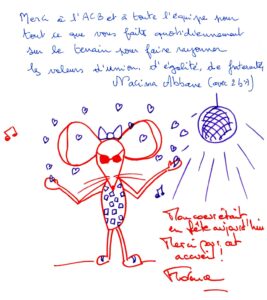 Merci à l'ACB et à toute l'équipe pour
tout ce que vous faites quotidiennement
sur le terrain pour faire rayonner
les valeurs d'union, d'égalité, de fraternité
Nacima Abbane
Mon coeur était
en fête aujourd'hui
Merci pour cet
accueil !